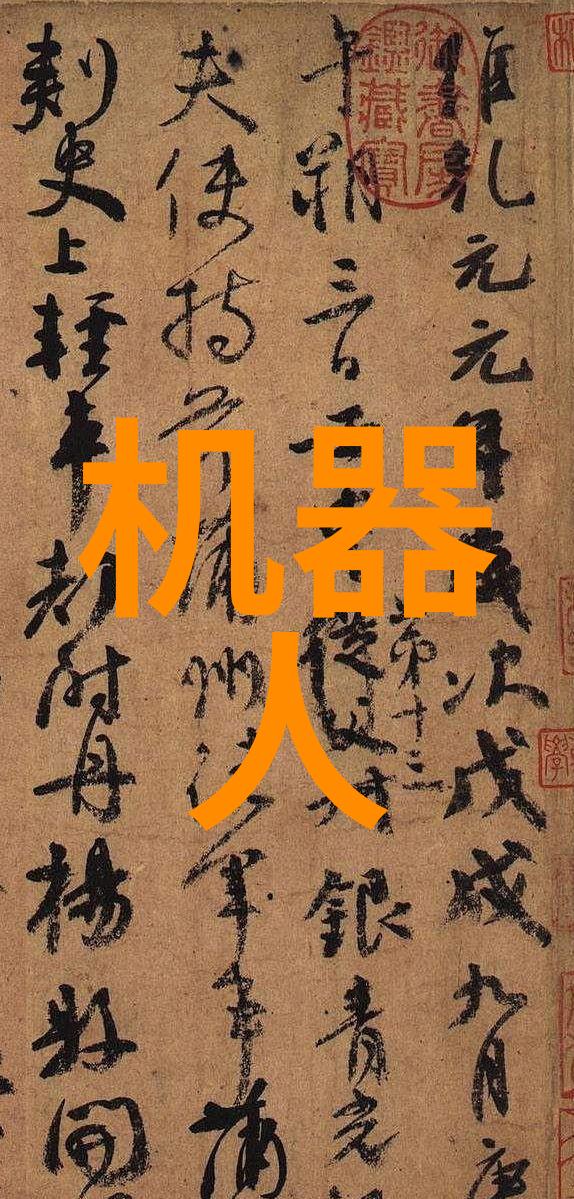 机器
人
維乾元元年歲次戊戌九月庚
午朔三日壬申從父叔銀青光
第十三
夫使持節蒲州諸軍事蒲
刺史上輕車都尉丹楊縣開
御書房
鑑藏寶